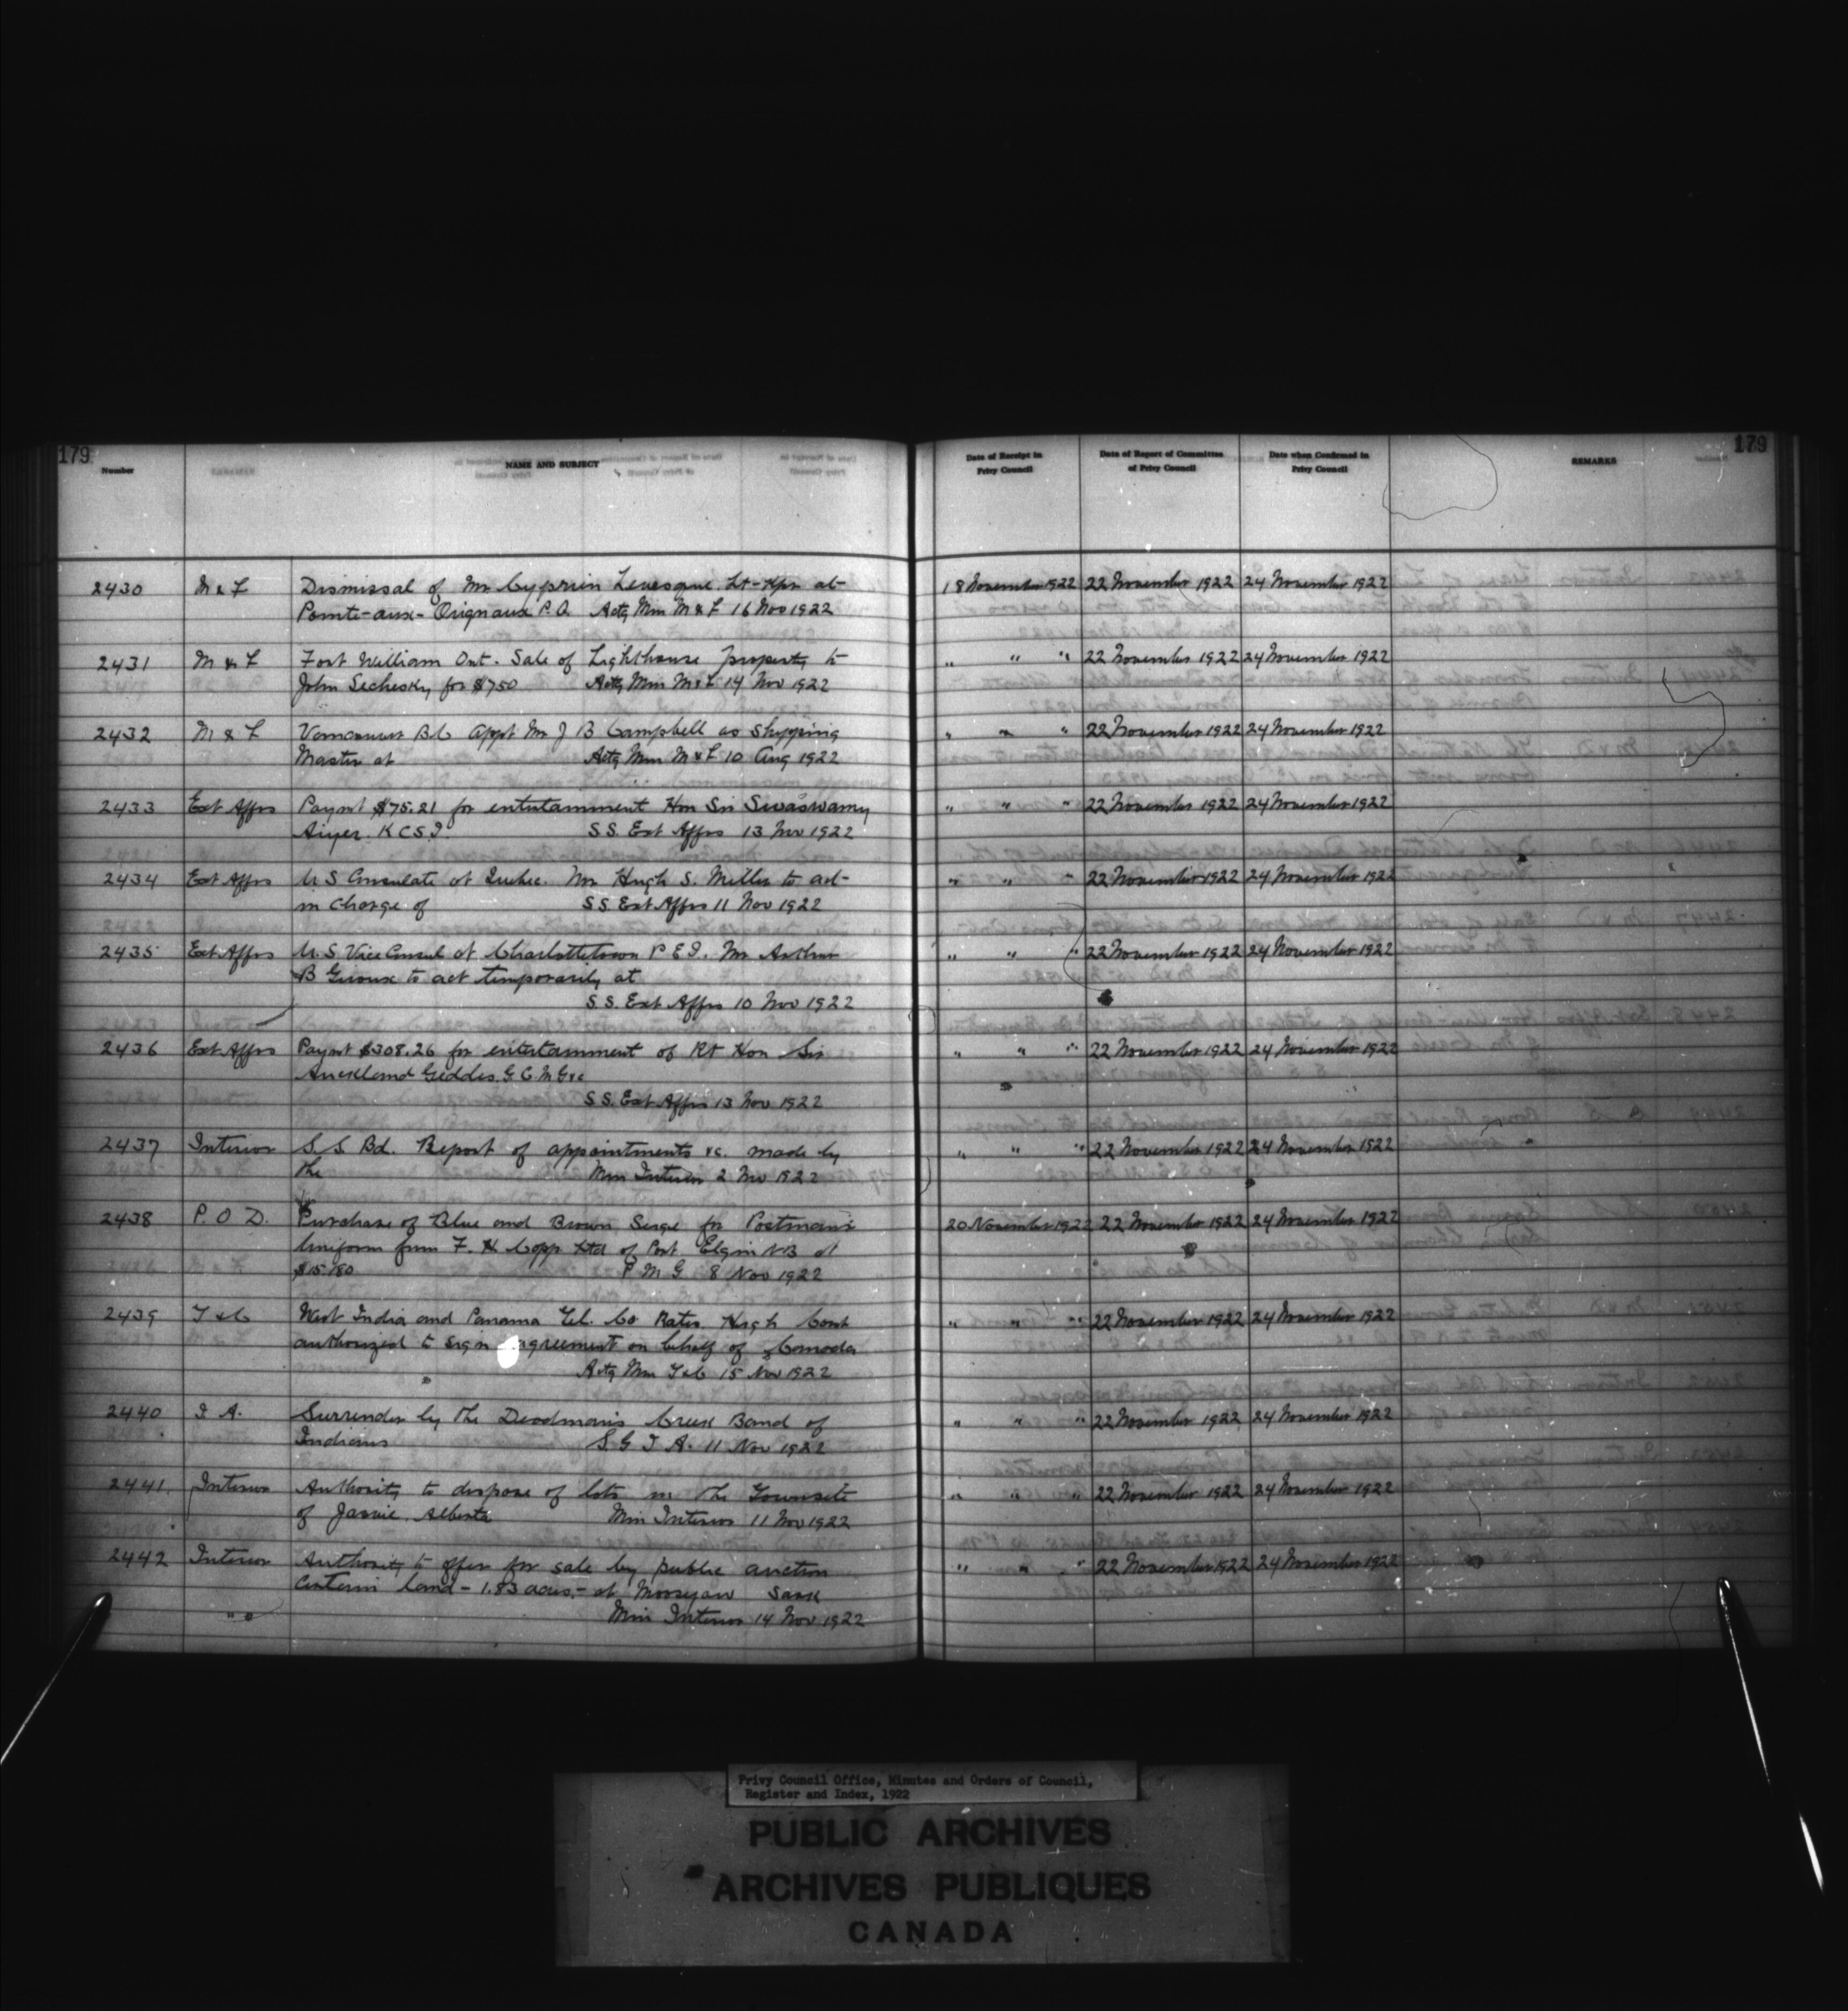 179
179
Number
NAME AND SUBJECT
Date of Receipt in Privy Council
Date of Report of Committee of Privy Council
Date when Confirmed in Privy Council
REMARKS
2430 M & F Dismissal of Mr Cyprien Levesque Lt-Kpr at 18 November 1922 22 November 1922 24 November 1922
Pointe-aux-Orignaux P.Q. Actg Min M & F 16 Nov 1922
2431 M & F Fort William Ont. Sale of Lighthouse property to " " " 22 November 1922 24 November 1922
John Sechesky for $750 Actg Min M & F 14 Nov 1922
2432 M & F Vancouver B.C. Appt Mr J B Campbell as Shipping " " " 22 November 1922 24 November 1922
Master at Actg Min M & F 10 Aug 1922
2433 Ext Affrs Paymt $75.21 for entertainment Hon Sir Sivaswamy " " " 22 November 1922 24 November 1922
Aiyer. K C S I. S.S. Ext Affrs 13 Nov 1922
2434 Ext Affrs U S Consulate at Quebec. Mr Hugh S. Miller to act " " " 22 November 1922 24 November 1922
in charge of S.S. Ext Affrs 11 Nov 1922
2435 Ext Affrs U.S. Vice Consul at Charlottetown P E I. Mr Arthur " " " 22 November 1922 24 November 1922
B Giroux to act temporarily at
S.S. Ext Affrs 10 Nov 1922
2436 Ext Affrs Paymt $308.26 for entertainment of Rt Hon Sir " " " 22 November 1922 24 November 1922
Auckland Geddes. G.C.M.G &c
S S. Ext Affrs 13 Nov 1922
2437 Interior S. S. Bd. Report of appointments &c. made by " " " 22 November 1922 24 November 1922
the Min Interior 2 Nov 1922
2438 P. O D. Purchase of Blue and Brown Serge for Postman's 20 November 1922 22 November 1922 24 November 1922
Uniform from F. H Copp Ltd of Port Elgin NB at
P M G 8 Nov 1922
2439 T & C West India and Panama Tel. Co Rates. High Comr " " " 22 November 1922 24 November 1922
authorized to sign agreement on behalf of Canada
Actg Min T & C 15 Nov 1922
2440 I A. Surrender by the Deadman's Creek Band of " " " 22 November 1922 24 November 1922
Indians S. G I A. 11 Nov 1922
2441 Interior Authority to dispose of lots in the Townsite " " " 22 November 1922 24 November 1922
of Jarvie. Alberta Min Interior 11 Nov 1922
2442 Interior Authority to offer for sale by public auction " " " 22 November 1922 24 November 1922
Certain land - 1.83 acres - at Moosejaw Sask
Min Interior 14 Nov 1922
Privy Council Office, Minutes and Orders of Council,
Register and Index, 1922
PUBLIC ARCHIVES
ARCHIVES PUBLIQUES
CANADA